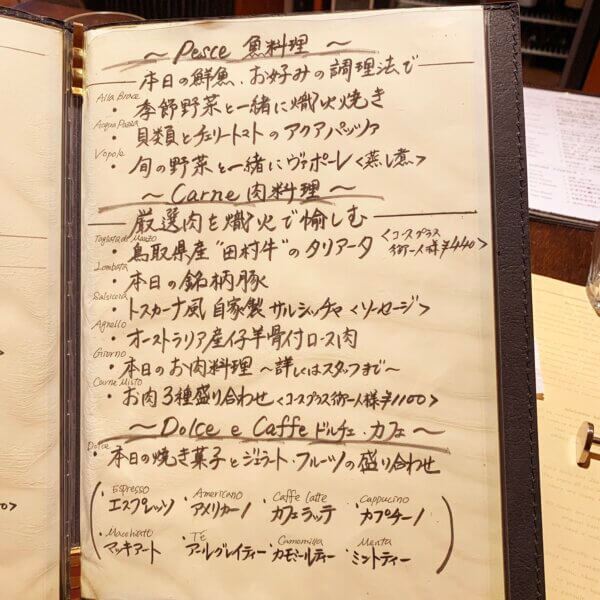 ～ Pesce 魚料理 ～
本日の鮮魚、お好みの調理法で
Alla Brace
・季節野菜と一緒に熾火焼き
Acqua Pazza
・貝類とチェリートマトのアクアパッツァ
Vapole
・旬の野菜と一緒にヴァポーレ<蒸し煮>
～ Carne 肉料理 ～
厳選肉を熾火で愉しむ
Tagliata de Manzo
・鳥取県産"田村牛"のタリアータ <コースプラスお一人様¥440>
Lombata
・本日の銘柄豚
Salsiccia
・トスカーナ風 自家製サルシッチャ<ソーセージ>
Agnello
・オーストラリア産仔羊骨付ロース肉
Giorno
・本日のお肉料理 ～詳しくはスタッフまで～
Carne Misto
・お肉3種盛り合わせ<コースプラスお一人様¥1100>
～ Dolce e Caffe ドルチェ・カフェ ～
Dolce
・本日の焼き菓子とジェラート・フルーツの盛り合わせ
Espresso Americano Caffe Latte Cappucino
・エスプレッソ ・アメリカーノ ・カフェラッテ ・カプチーノ
Macchiato Tè Camomilla Menta
・マッキアート ・アールグレイティー ・カモミールティー ・ミントティー